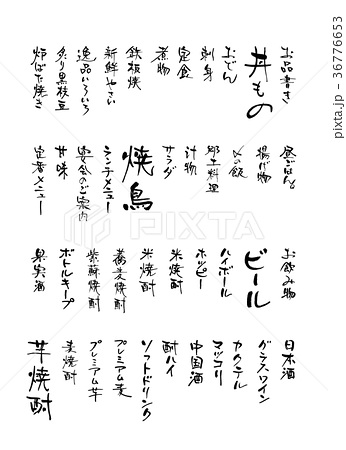 お品書き
丼もの
おでん
刺身
定食
煮物
鉄板焼
新鮮やさい
逸品いろいろ
炙り黒枝豆
炉ばた焼き
昼ごはん
揚げ物
〆の飯
郷土料理
汁物
サラダ
焼鳥
ランチメニュー
宴会のご案内
甘味
定番メニュー
お飲み物
ビール
ハイボール
ホッピー
米焼酎
米焼酎
蕎麦焼酎
紫蘇焼酎
ボトルキープ
果実酒
日本酒
グラスワイン
カクテル
マッコリ
中国酒
酎ハイ
ソフトドリンク
プレミアム麦
プレミアム芋
麦焼酎
芋焼酎
PIXTA
pixta.jp - 36776653